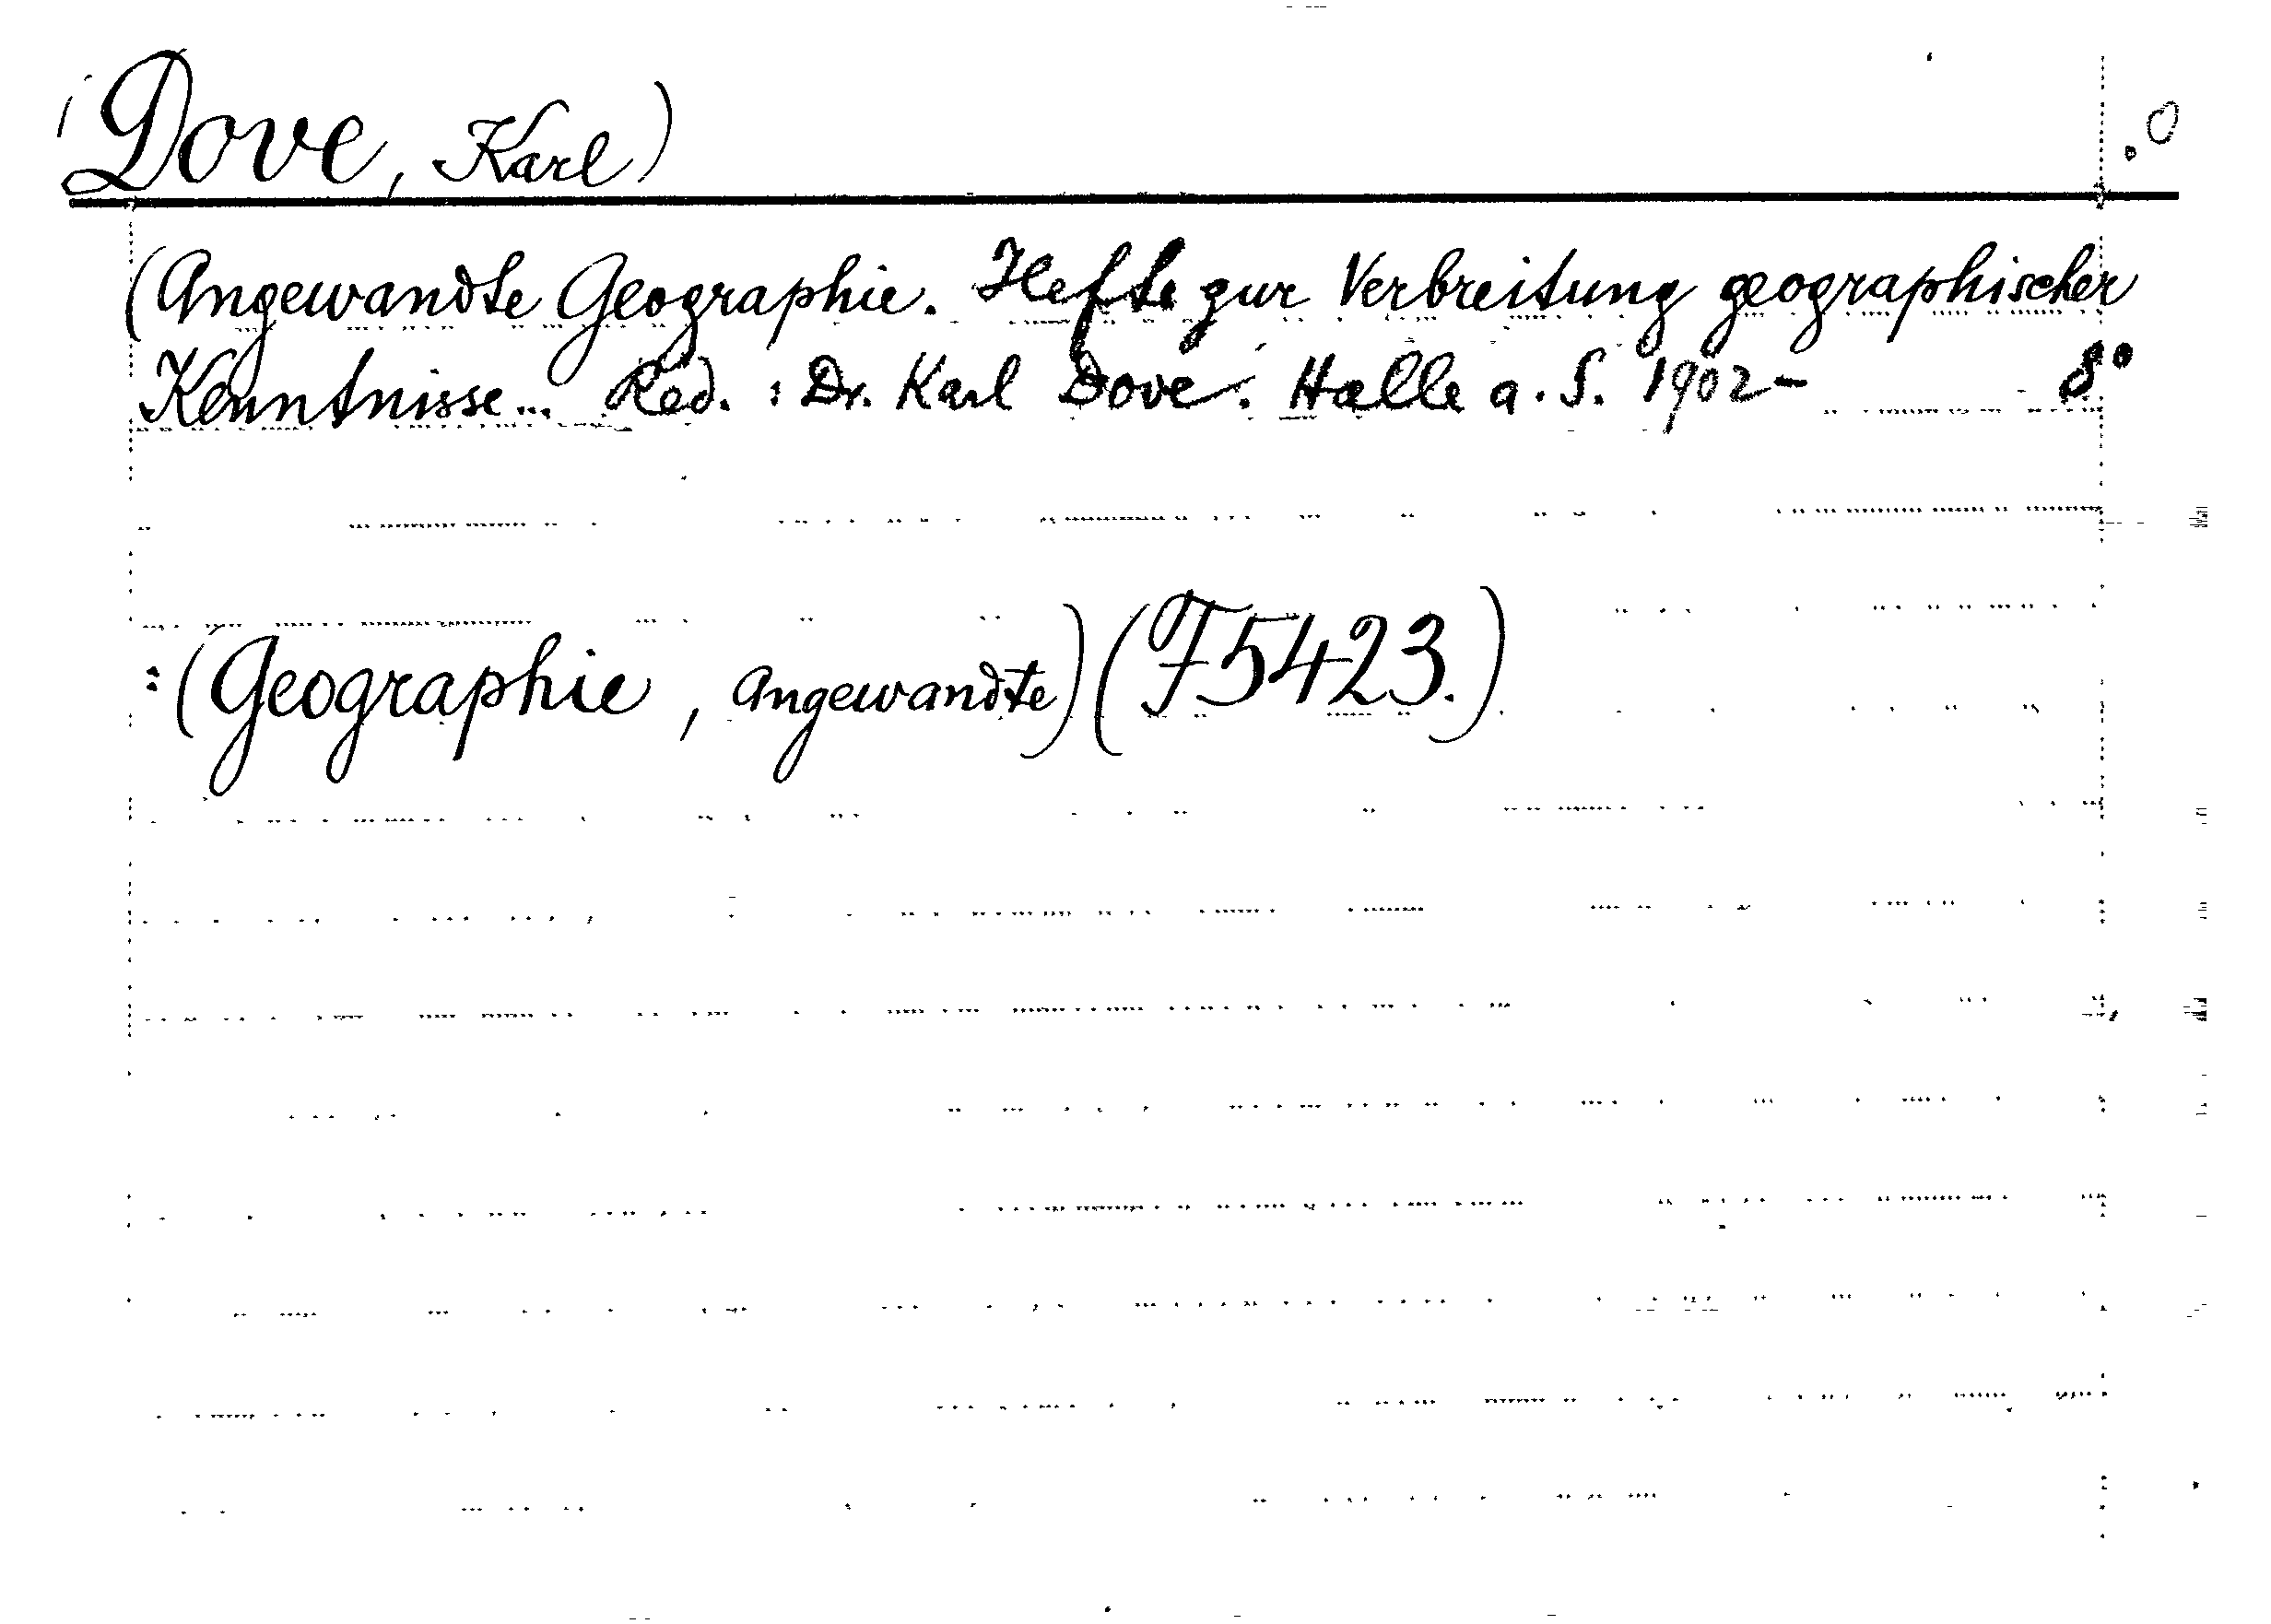 (Dove, Karl) .0
(Angewandte Geographie. Hefte zur Verbreitung geographischer
Kenntnisse... Red. : Dr. Karl Dove. Halle a. S. 1902- 8°
:(Geographie, Angewandte) (F5423.)